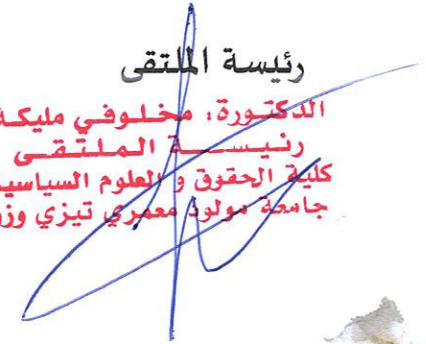 رئيسة الملتقى
الدكتورة: مخلوفي مليكة
رئيســـة الملتقـى
كلية الحقوق و العلوم السياسي
جامعة مولود معمري تيزي وز